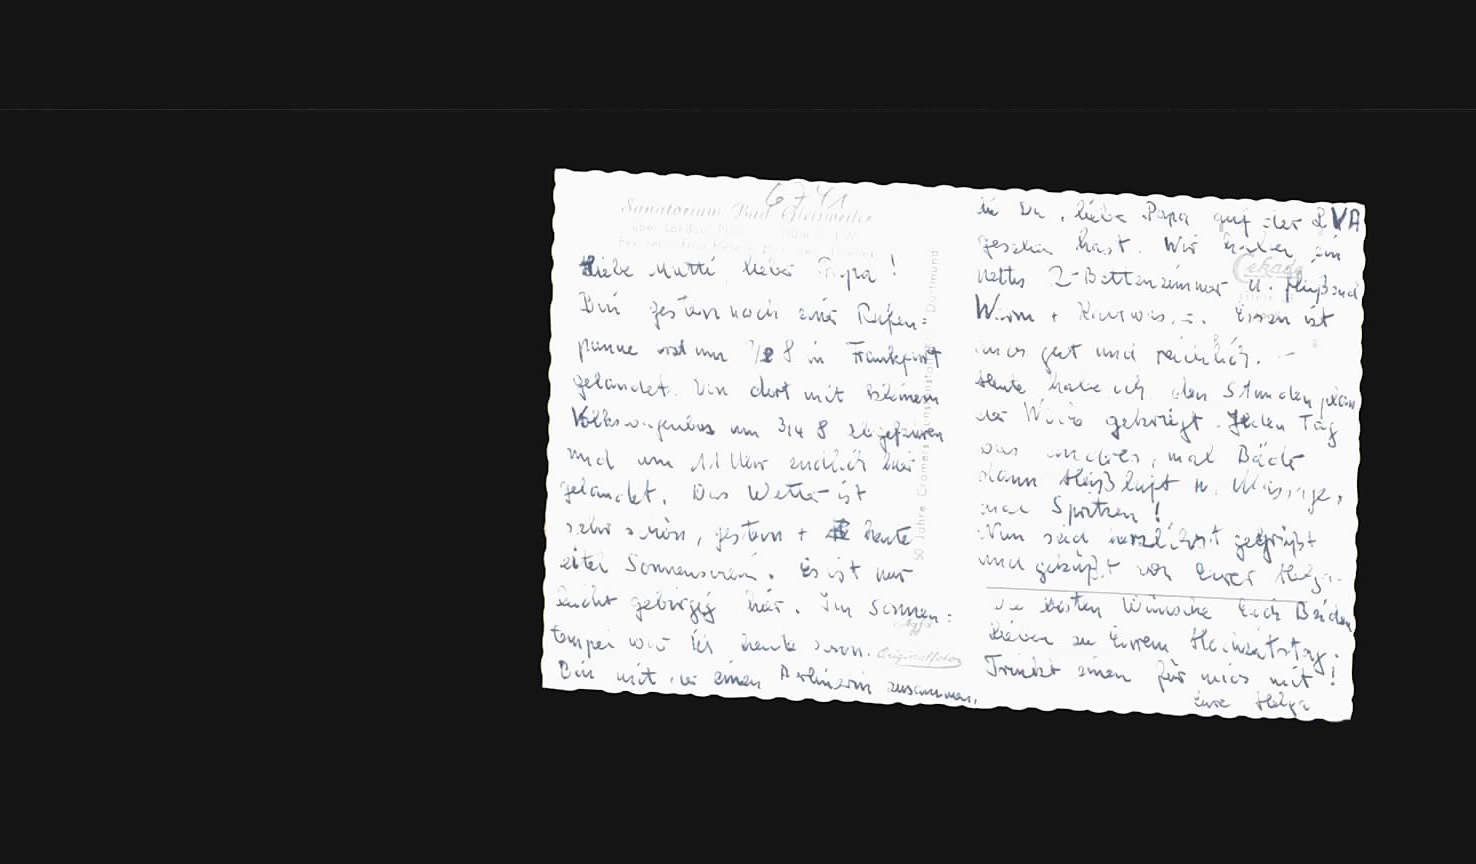 6741
Sanatorium Bad Gleisweiler
Liebe Mutti lieber Papa!
Bin gestern nach einer Reifen=
panne erst um 1/2 8 in Frankfurt
gelandet. Von dort mit kleinem
Volkswagenbus um 3/4 8 abgefahren
und um 11 Uhr endlich hier
gelandet. Das Wetter ist
sehr schön, gestern + heute
eitel Sonnenschein. Es ist nur
leicht gebirgig hier. Im Sonnen=
tempel war ich heute schon.
Bin mit der einen Berlinerin zusammen,
50 Jahre Cramers Kunstanstalt Dortmund
Agfa
Originalfoto
die Du, liebe Papa auf der LVA
gesehen hast. Wir haben ein
nettes 2-Bettenzimmer u. fließend
Cekade
Warm + Essen ist
auch gut und reichlich.
Heute habe ich den Stundenplan
der Woche gekriegt. Jeden Tag
was anderes, mal Bäder
dann Heißluft u. Massage,
mal Spritzen!
Nun seid herzlichst gegrüßt
und geküßt von Eurer Helga.
Die besten Wünsche Euch Beiden
Lieben zu Eurem Hochzeitstag.
Trinkt einen für mich mit!
Eure Helga